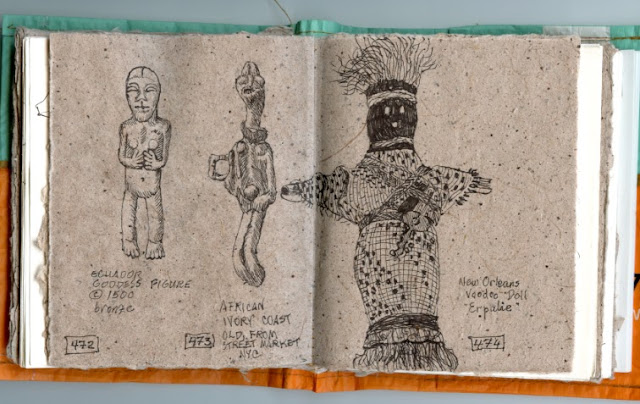 ECUADOR
GODDESS FIGURE
© 1500
bronze
472
AFRICAN
IVORY COAST
OLD, FROM
STREET MARKET
NYC
473
New Orleans
Voodoo Doll
"Erpulie"
474